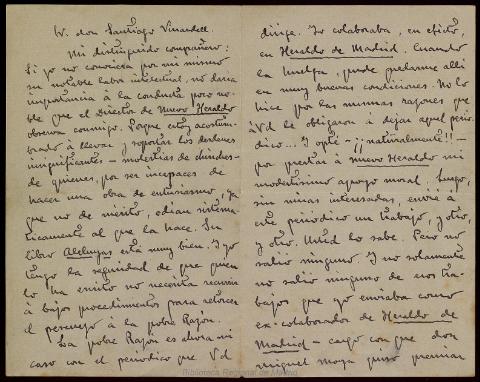 Sr. don Santiago Vinardell.
Mi distinguido compañero:
Si yo no conociera por mi mismo
su notable labor intelectual, no daria
importancia à la conducta poco no-
ble que el Director de Nuevo Heraldo
observa conmigo. Porque estoy acostum-
brado à llevar y soportar los desdenes
insignificantes – molestias de chinches –
de quienes, por ser incapaces de
hacer una obra de entusiasmo, ya
que no de mérito, odian sistemá-
ticamente al que la hace. Su
libro Aleluyas está muy bien. Y yo
tengo la seguridad de que quien
lo ha escrito no necesita recurrir
à bajos procedimientos para retorcer
el pescuezo à la pobre Razón.
La pobre Razón es ahora mi
caso con el periodico que Vd
dirige. Yo colaboraba, en efecto,
en Heraldo de Madrid. Cuando
la huelga, pude quedarme alli
en muy buenas condiciones. No lo
hice por las mismas razones que
à Vd le obligaron à dejar aquel perio-
dico... Y opté – ¡¡naturalmente!! –
por prestar à Nuevo Heraldo mi
modestisimo apoyo moral. Luego,
sin miras interesadas, envié à
este periodico un trabajo, y otro,
y otro. Usted lo sabe. Pero no
salió ninguno. Y no solamente
no salió ninguno de esos tra-
bajos que yo enviaba como
ex-colaborador de Heraldo de
Madrid – cargo con que don
Miguel Moya quiso premiar
Biblioteca Regional de Madrid